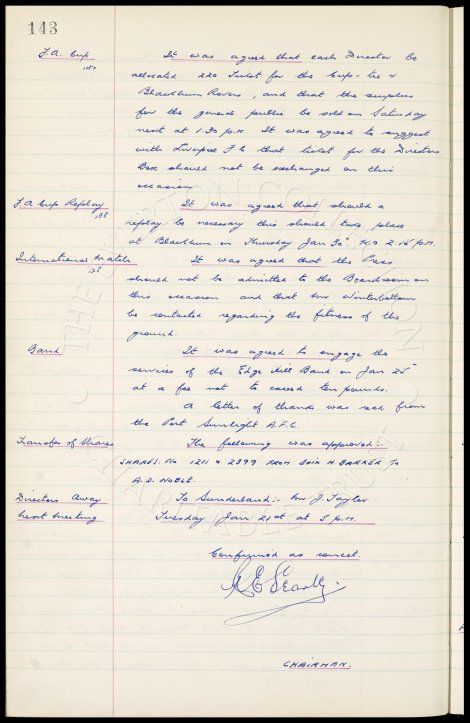 143
F.A. Cup
It was agreed that each Director be
allocated 220 Ticket for the Cup-tie v
Blackburn Rovers, and that the surplus
for the general public be sold on Saturday
next at 1.30 p.m. It was agreed to suggest
with Liverpool F.C. that ticket for the Directors
Box should not be exchanged on this
occasion
F.A. Cup Replay
It was agreed that should a
replay be necessary this should take place
at Blackburn on Thursday Jan 30th K.O 2.15 p.m.
International Match
It was agreed that the Press
should not be admitted to the Boardroom on
this occasion and that Mr Winterbottom
be contacted regarding the fitness of the
ground.
Band
It was agreed to engage the
services of the Edge Hill Band on Jan 25th
at a fee not to exceed ten pounds.
A letter of thanks was read from
the Port Sunlight A.F.C.
Transfer of Shares
The following was approved:-
SHARES. No 1211 & 2399 FROM H. BARKER TO
A.D. NOBLE.
Directors Away
To Sunderland:- Mr J Taylor.
next meeting
Tuesday Jan 21st at 5 p.m.
Confirmed as correct.
CHAIRMAN.
THE EVERTON COLLECTION
CHARITABLE TRUST